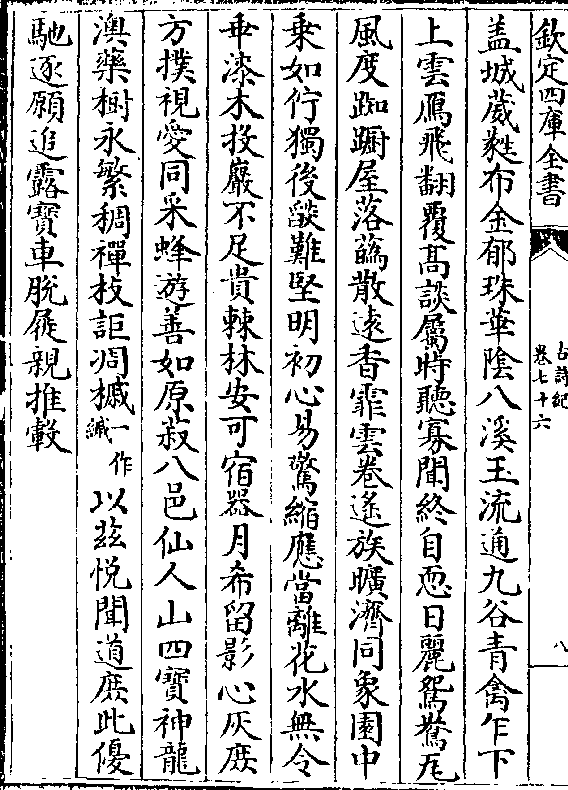 欽定四庫全書
古詩紀
卷七十六
八
盖城葳蕤布金郁珠華陰八溪玉流通九谷青禽乍下
上雲鴈飛翻覆髙談屬時聽寡聞終自恧日麗鴛鴦瓦
風度蜘蹰屋落蘤散逺香霏雲卷遙族曠濟同象園中
乗如佇獨後燄難堅明初心易驚縮應當離花水無令
垂漆木投巖不足貴棘林安可宿器月希留影心灰庶
方撲視愛同采蜂遊善如原菽八邑仙人山四寶神龍
澳藥樹永繁稠禪枝詎凋摵一作縬以兹悦聞道庶此優
馳逐願追露寶車脫屣親推轂